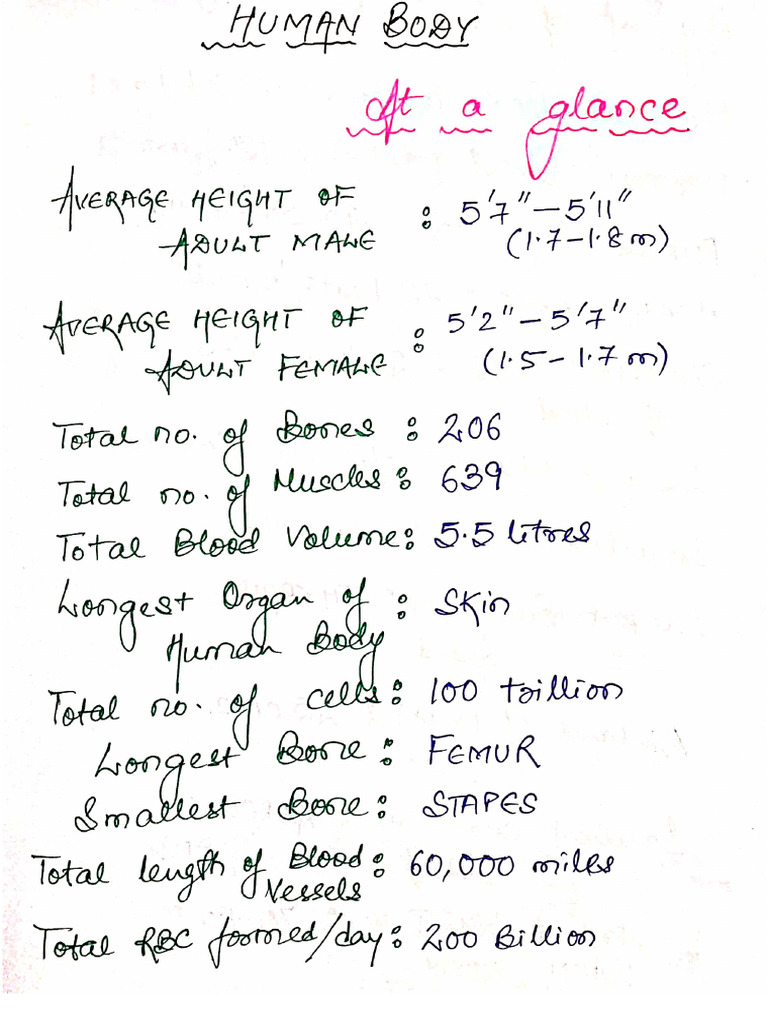 HUMAN BODY
At a glance
AVERAGE HEIGHT OF
ADULT MALE : 5'7" – 5'11"
(1.7 – 1.8 m)
AVERAGE HEIGHT OF
ADULT FEMALE : 5'2" – 5'7"
(1.5 – 1.7 m)
Total no. of Bones : 206
Total no. of Muscles : 639
Total Blood Volume : 5.5 litres
Longest Organ of : Skin
Human Body
Total no. of cells : 100 trillion
Longest Bone : FEMUR
Smallest Bone : STAPES
Total length of Blood : 60,000 miles
Vessels
Total RBC formed/day : 200 Billion